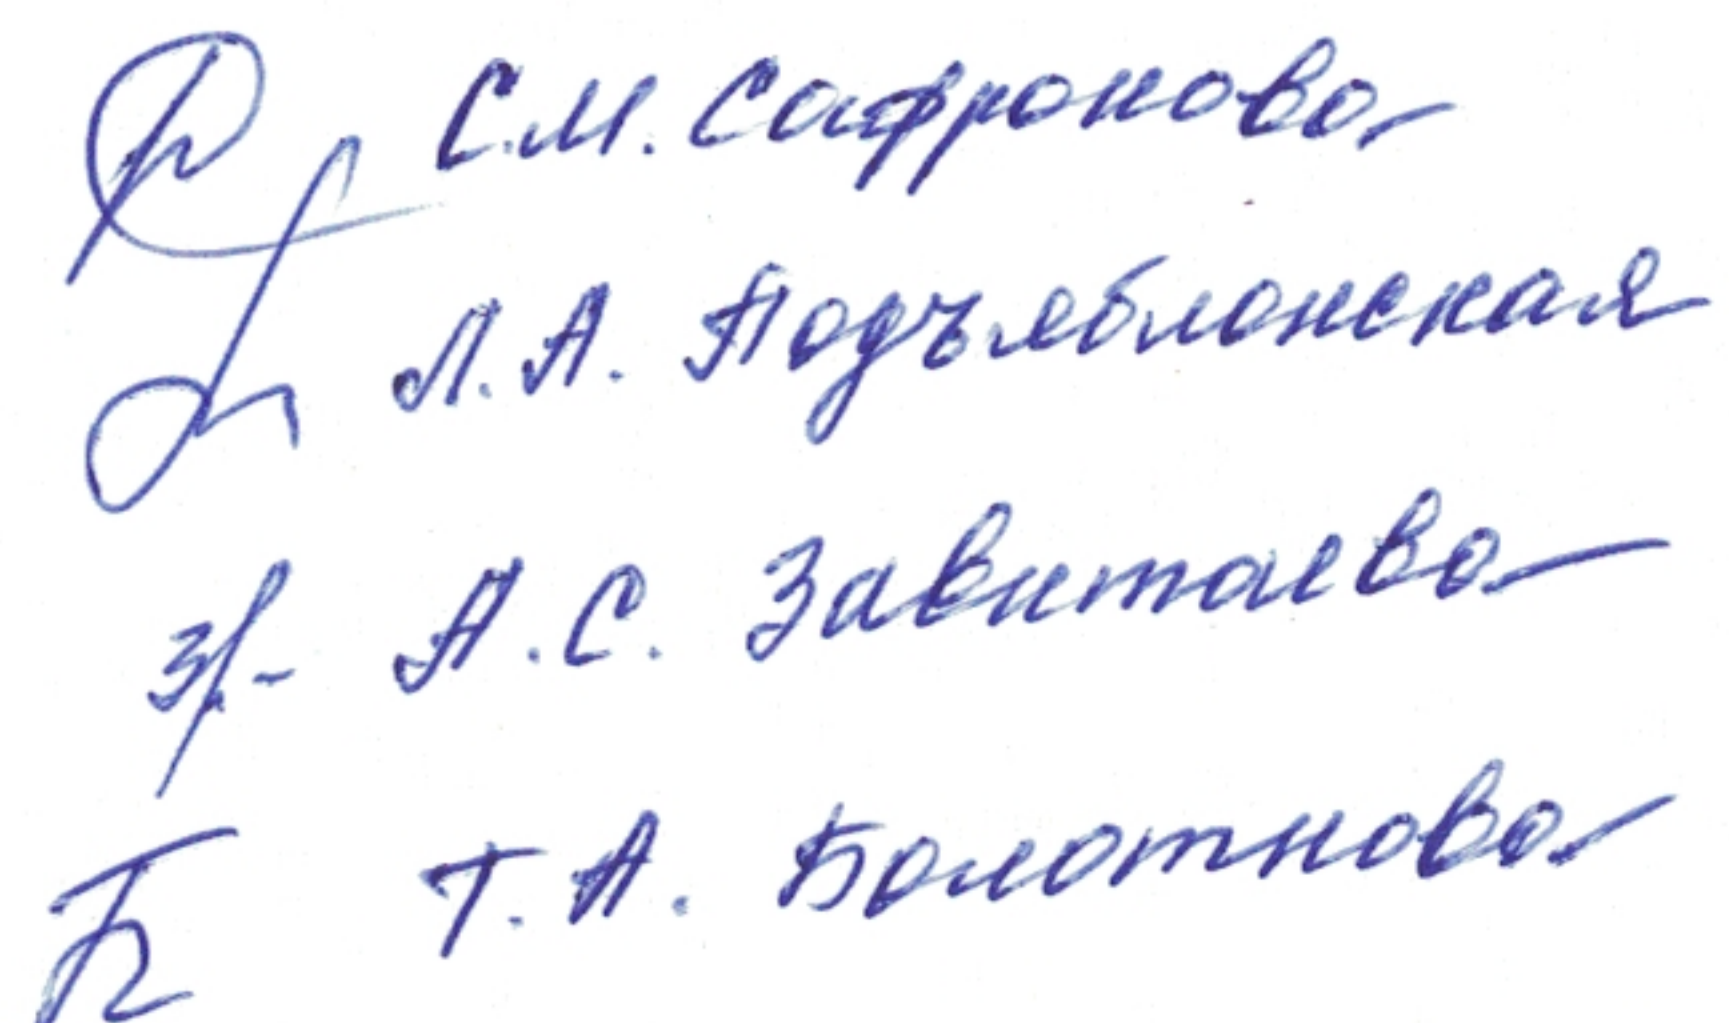 С.М. Сафронова
Л.А. Подъяблонская
А.С. Завитаева
Т.А. Болотнова